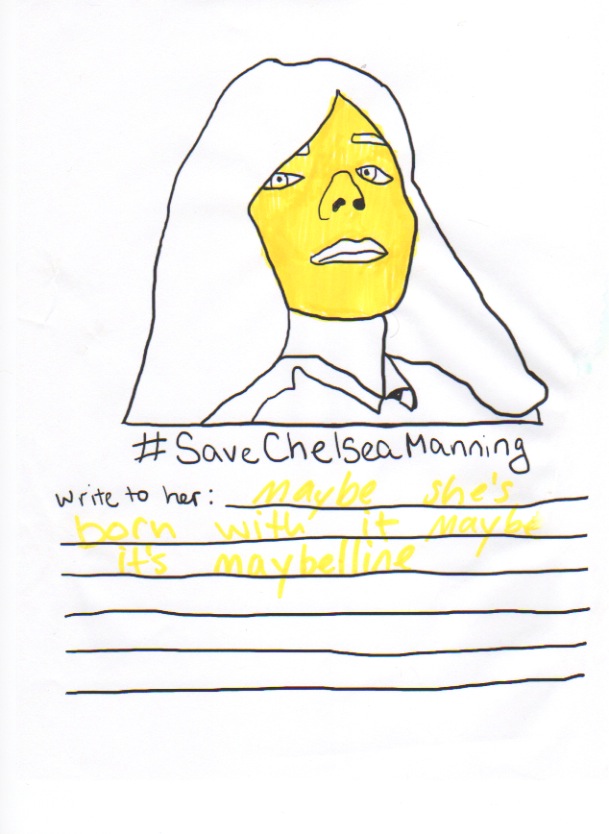 #SaveChelseaManning
write to her: maybe she's
born with it maybe
it's maybelline